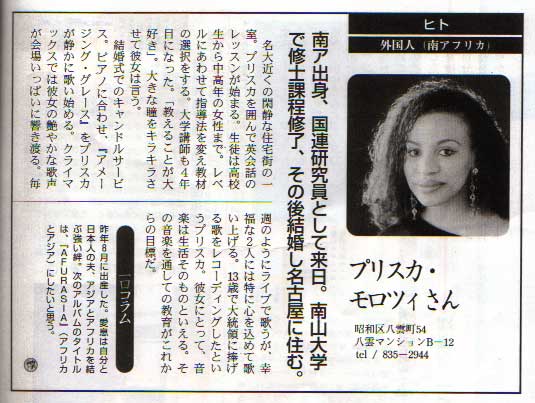 ヒト
外国人（南アフリカ）
プリスカ・
モロツィさん
昭和区八雲町54
八雲マンションB－12
tel / 835－2944
南ア出身、国連研究員として来日。南山大学
で修士課程修了、その後結婚し名古屋に住む。
名大近くの閑静な住宅街の一
室。プリスカを囲んで英会話の
レッスンが始まる。生徒は高校
生から中高年の女性まで。レベ
ルにあわせて指導法を変え教材
の選択をする。大学講師も４年
目になった。「教えることが大
好き」。大きな瞳をキラキラさ
せて彼女は言う。
結婚式でのキャンドルサービ
ス。ピアノに合わせ、『アメー
ジング・グレース』をプリスカ
が静かに歌い始める。クライマ
ックスでは彼女の艶やかな歌声
が会場いっぱいに響き渡る。毎
週のようにライブで歌うが、幸
福な２人には特に心を込めて歌
い上げる。13歳で大統領に捧げ
る歌をレコーディングしたとい
うプリスカ。彼女にとって、音
楽は生活そのものといえる。そ
の音楽を通しての教育がこれか
らの目標だ。
一口コラム
昨年８月に出産した。愛息は自分と
日本人の夫、アジアとアフリカを結
ぶ強い絆。次のアルバムのタイトル
は、「AFURASIA」（アフリカ
とアジア）にしたいと思う。